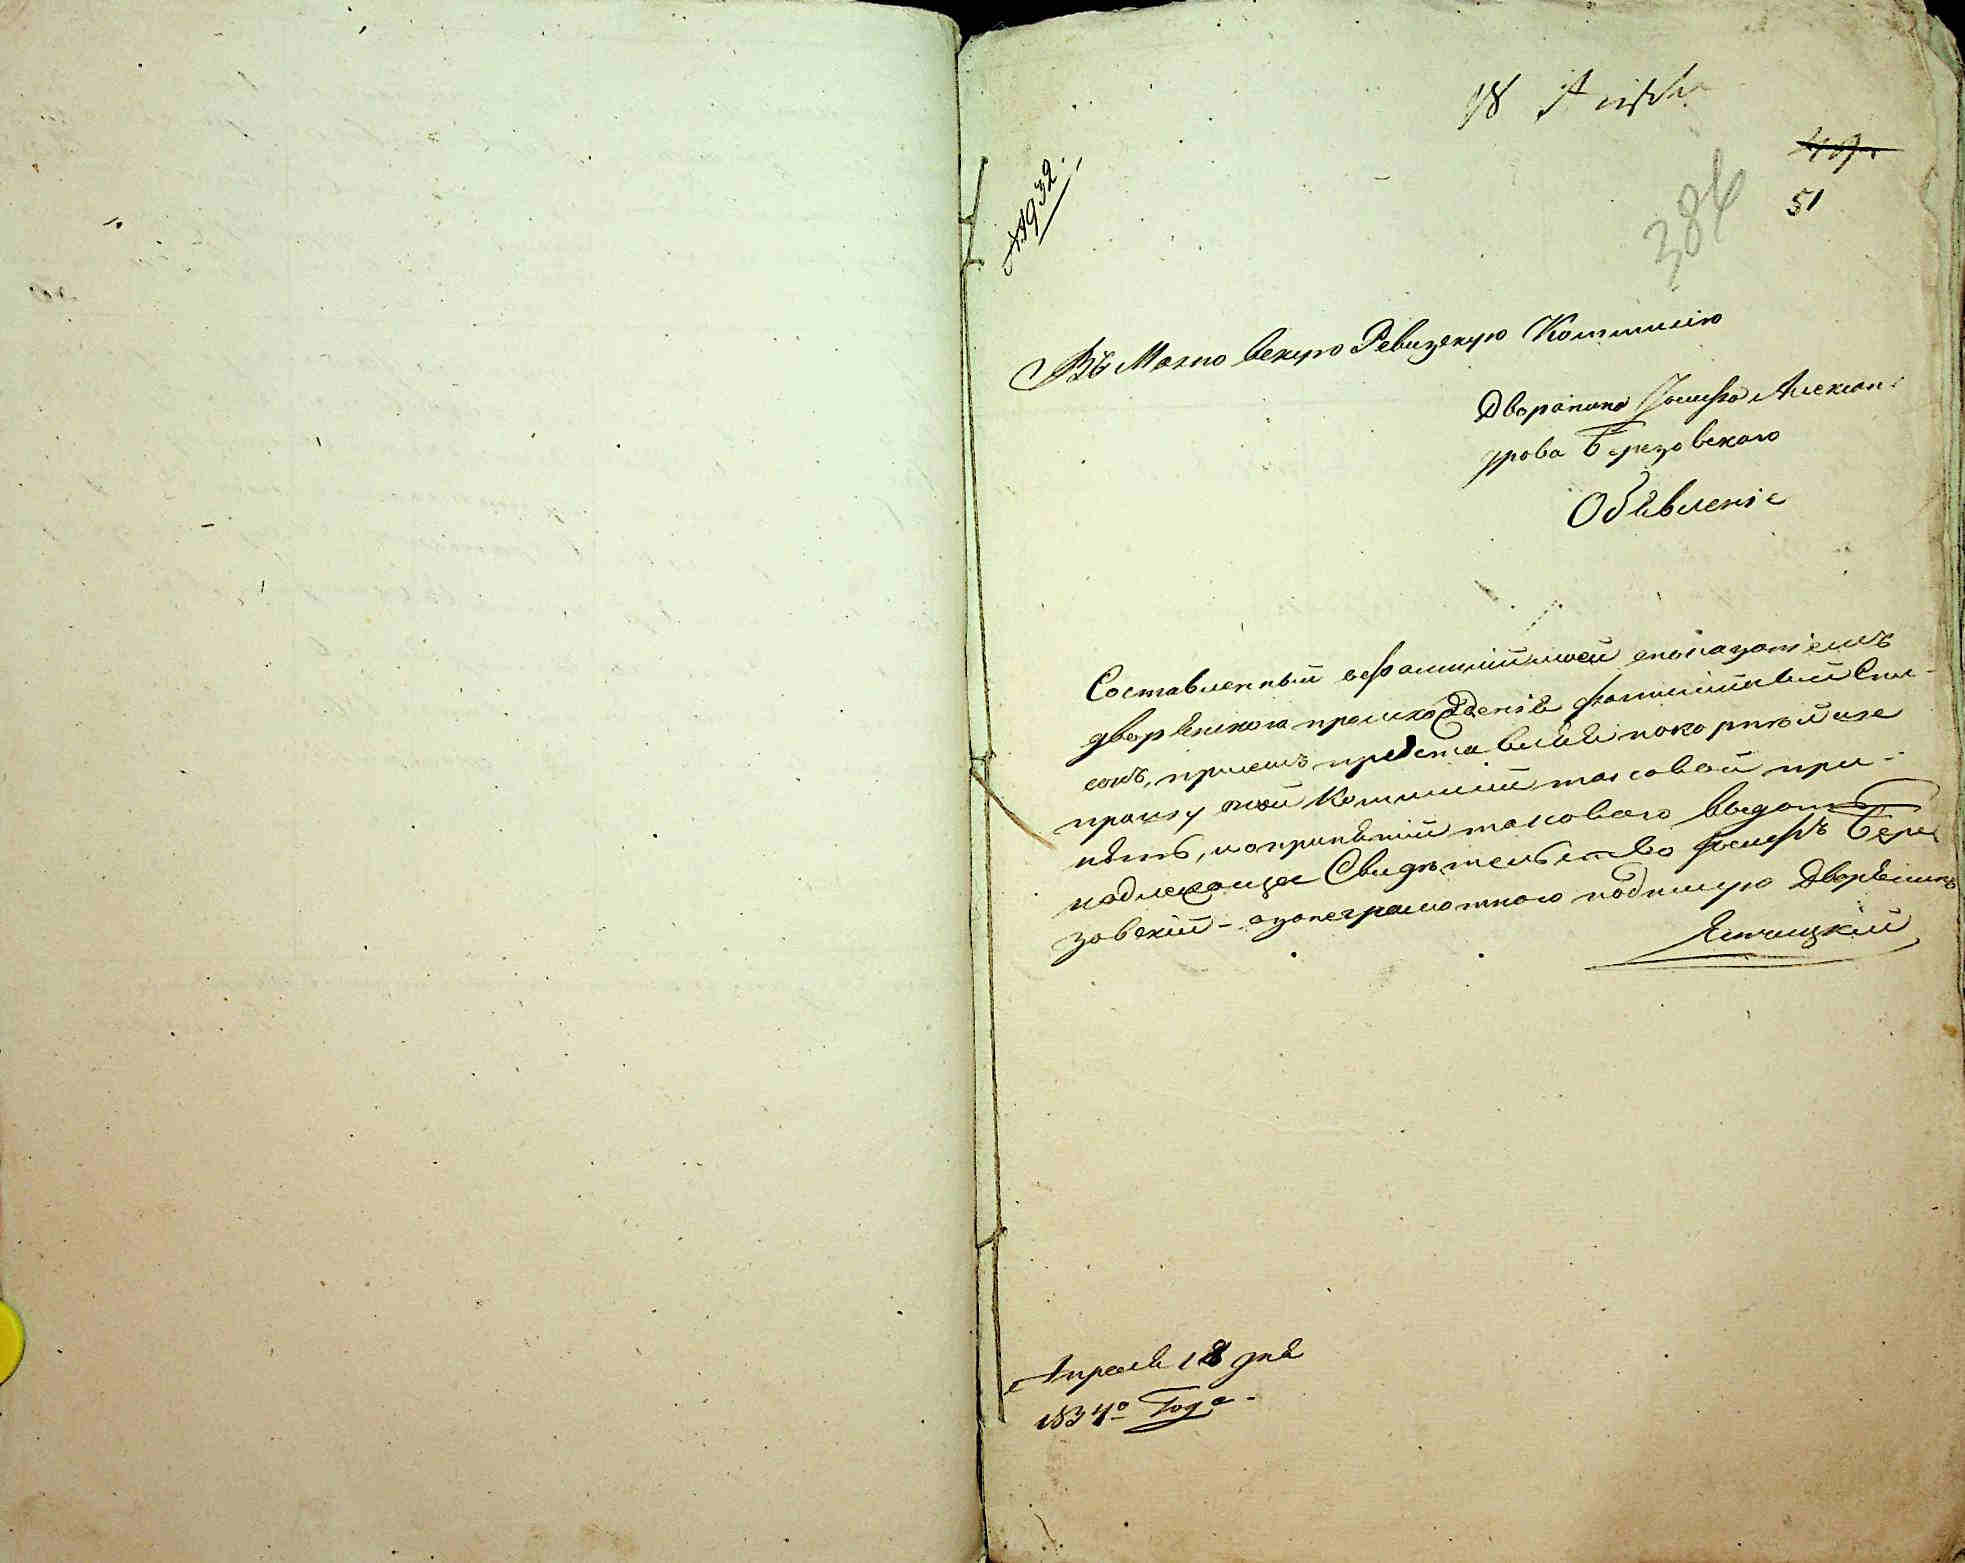 18 Апреля
51
384
№ 1932.
Въ Махно вскую Ревизскую Коммисію
Дворянина Іосифа Алексан-
дрова Березовскаго
Обявленіе
Составленный о фамиліи моей споказаніемъ
дворянскаго происхожденія фамилійный Спи-
сокъ, присемъ представляя покорнейше
прошу оной Коммисіи таковой при-
нять, и о принятіи таковаго выдать
надлежащее Свидѣтельство Іосифъ Бере
зовскій - а за неграмотнаго подпишусь Дворянинъ
Яничицкій
Апреля 18 дня
1834го Года-